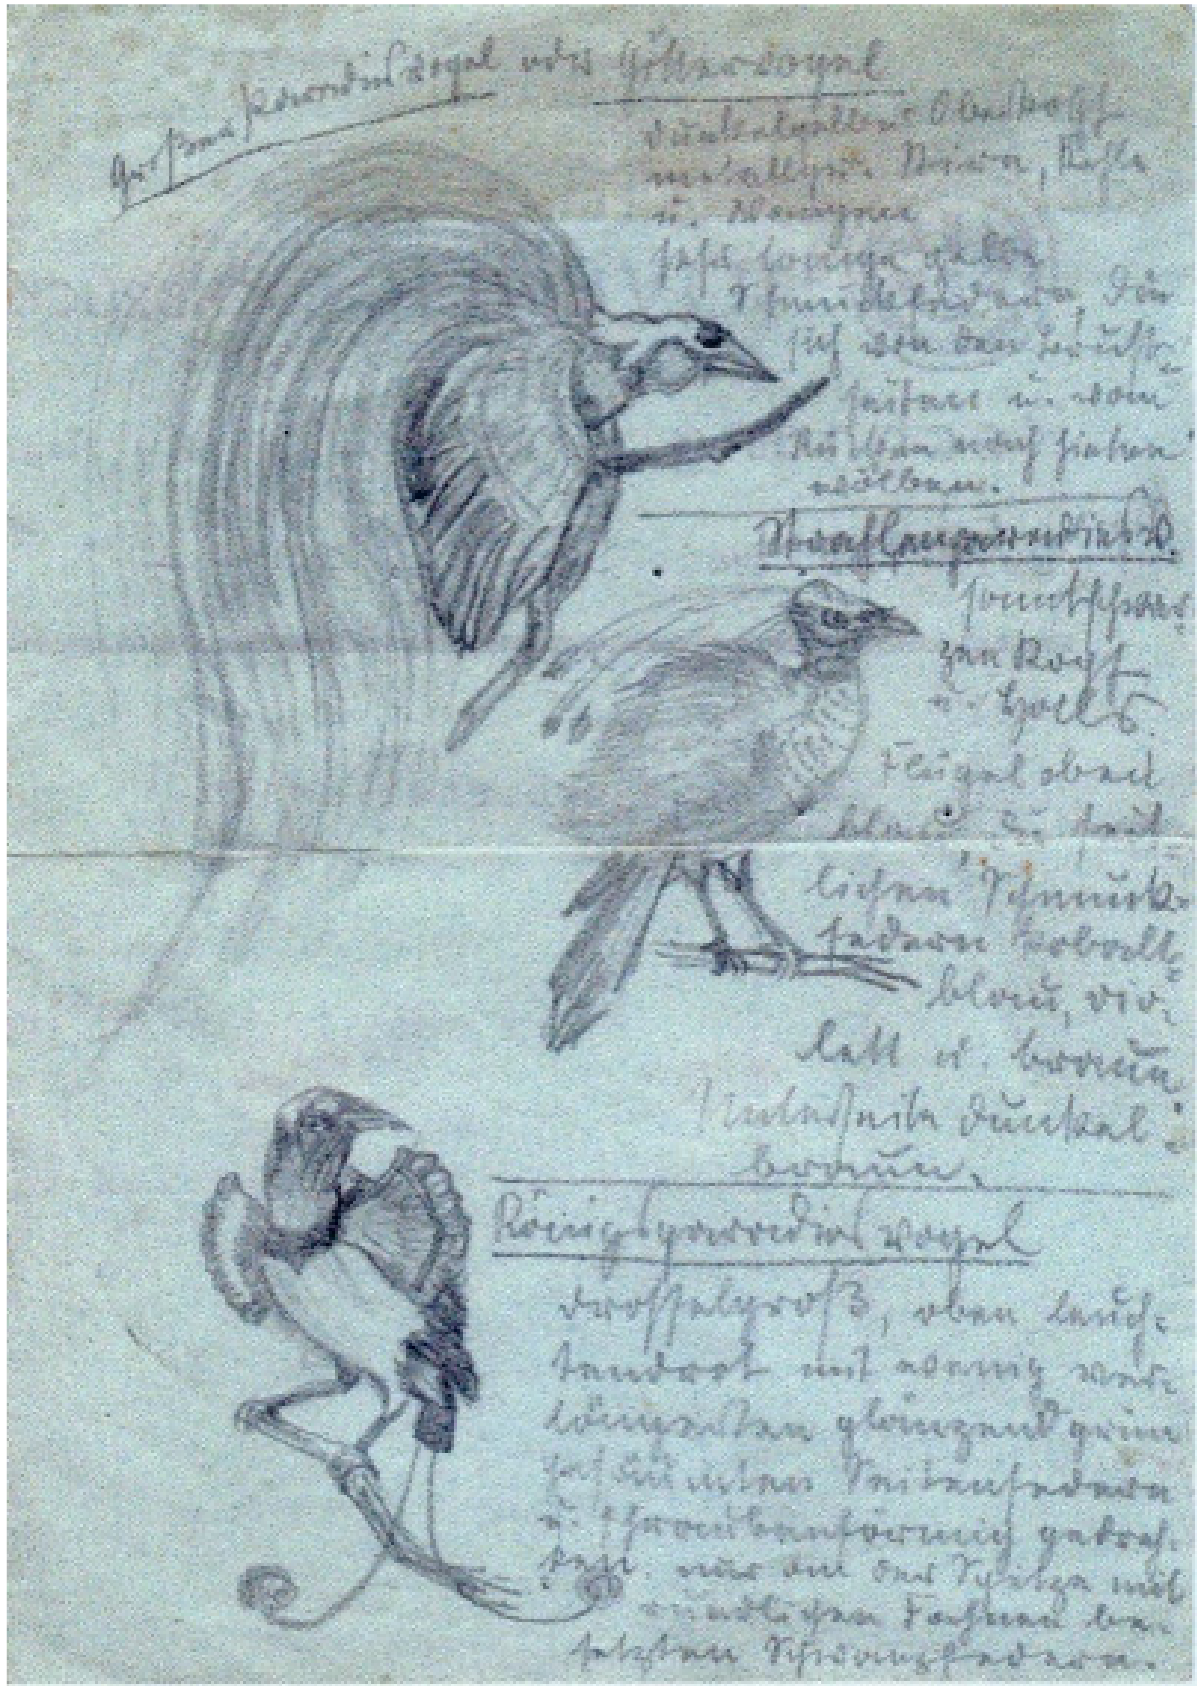 Großer Paradiesvogel oder Göttervogel
dunkelgelber Oberkopf
metallgr. Stirn, Kehle
u. Wangen
sehr lange gelbe
Schmuckfedern, die
sich von den Brust=
seiten u. vom
Rücken nach hinten
wölben.
Strahlenparadiesv.
samtschwar=
zen Kopf
u. Hals.
Flügel oben
blau, die seit=
lichen Schmuck=
federn kobalt=
blau, vio=
lett u. braun.
Unterseite dunkel=
braun.
Königsparadiesvogel
drosselgroß, oben leuch=
tendrot mit wenig ver=
längerten glänzend grün
gesäumten Seitenfedern
u. schraubenförmig gedreh=
ten, nur an der Spitze mit
rundlichen Fahnen be=
setzten Schwanzfedern.